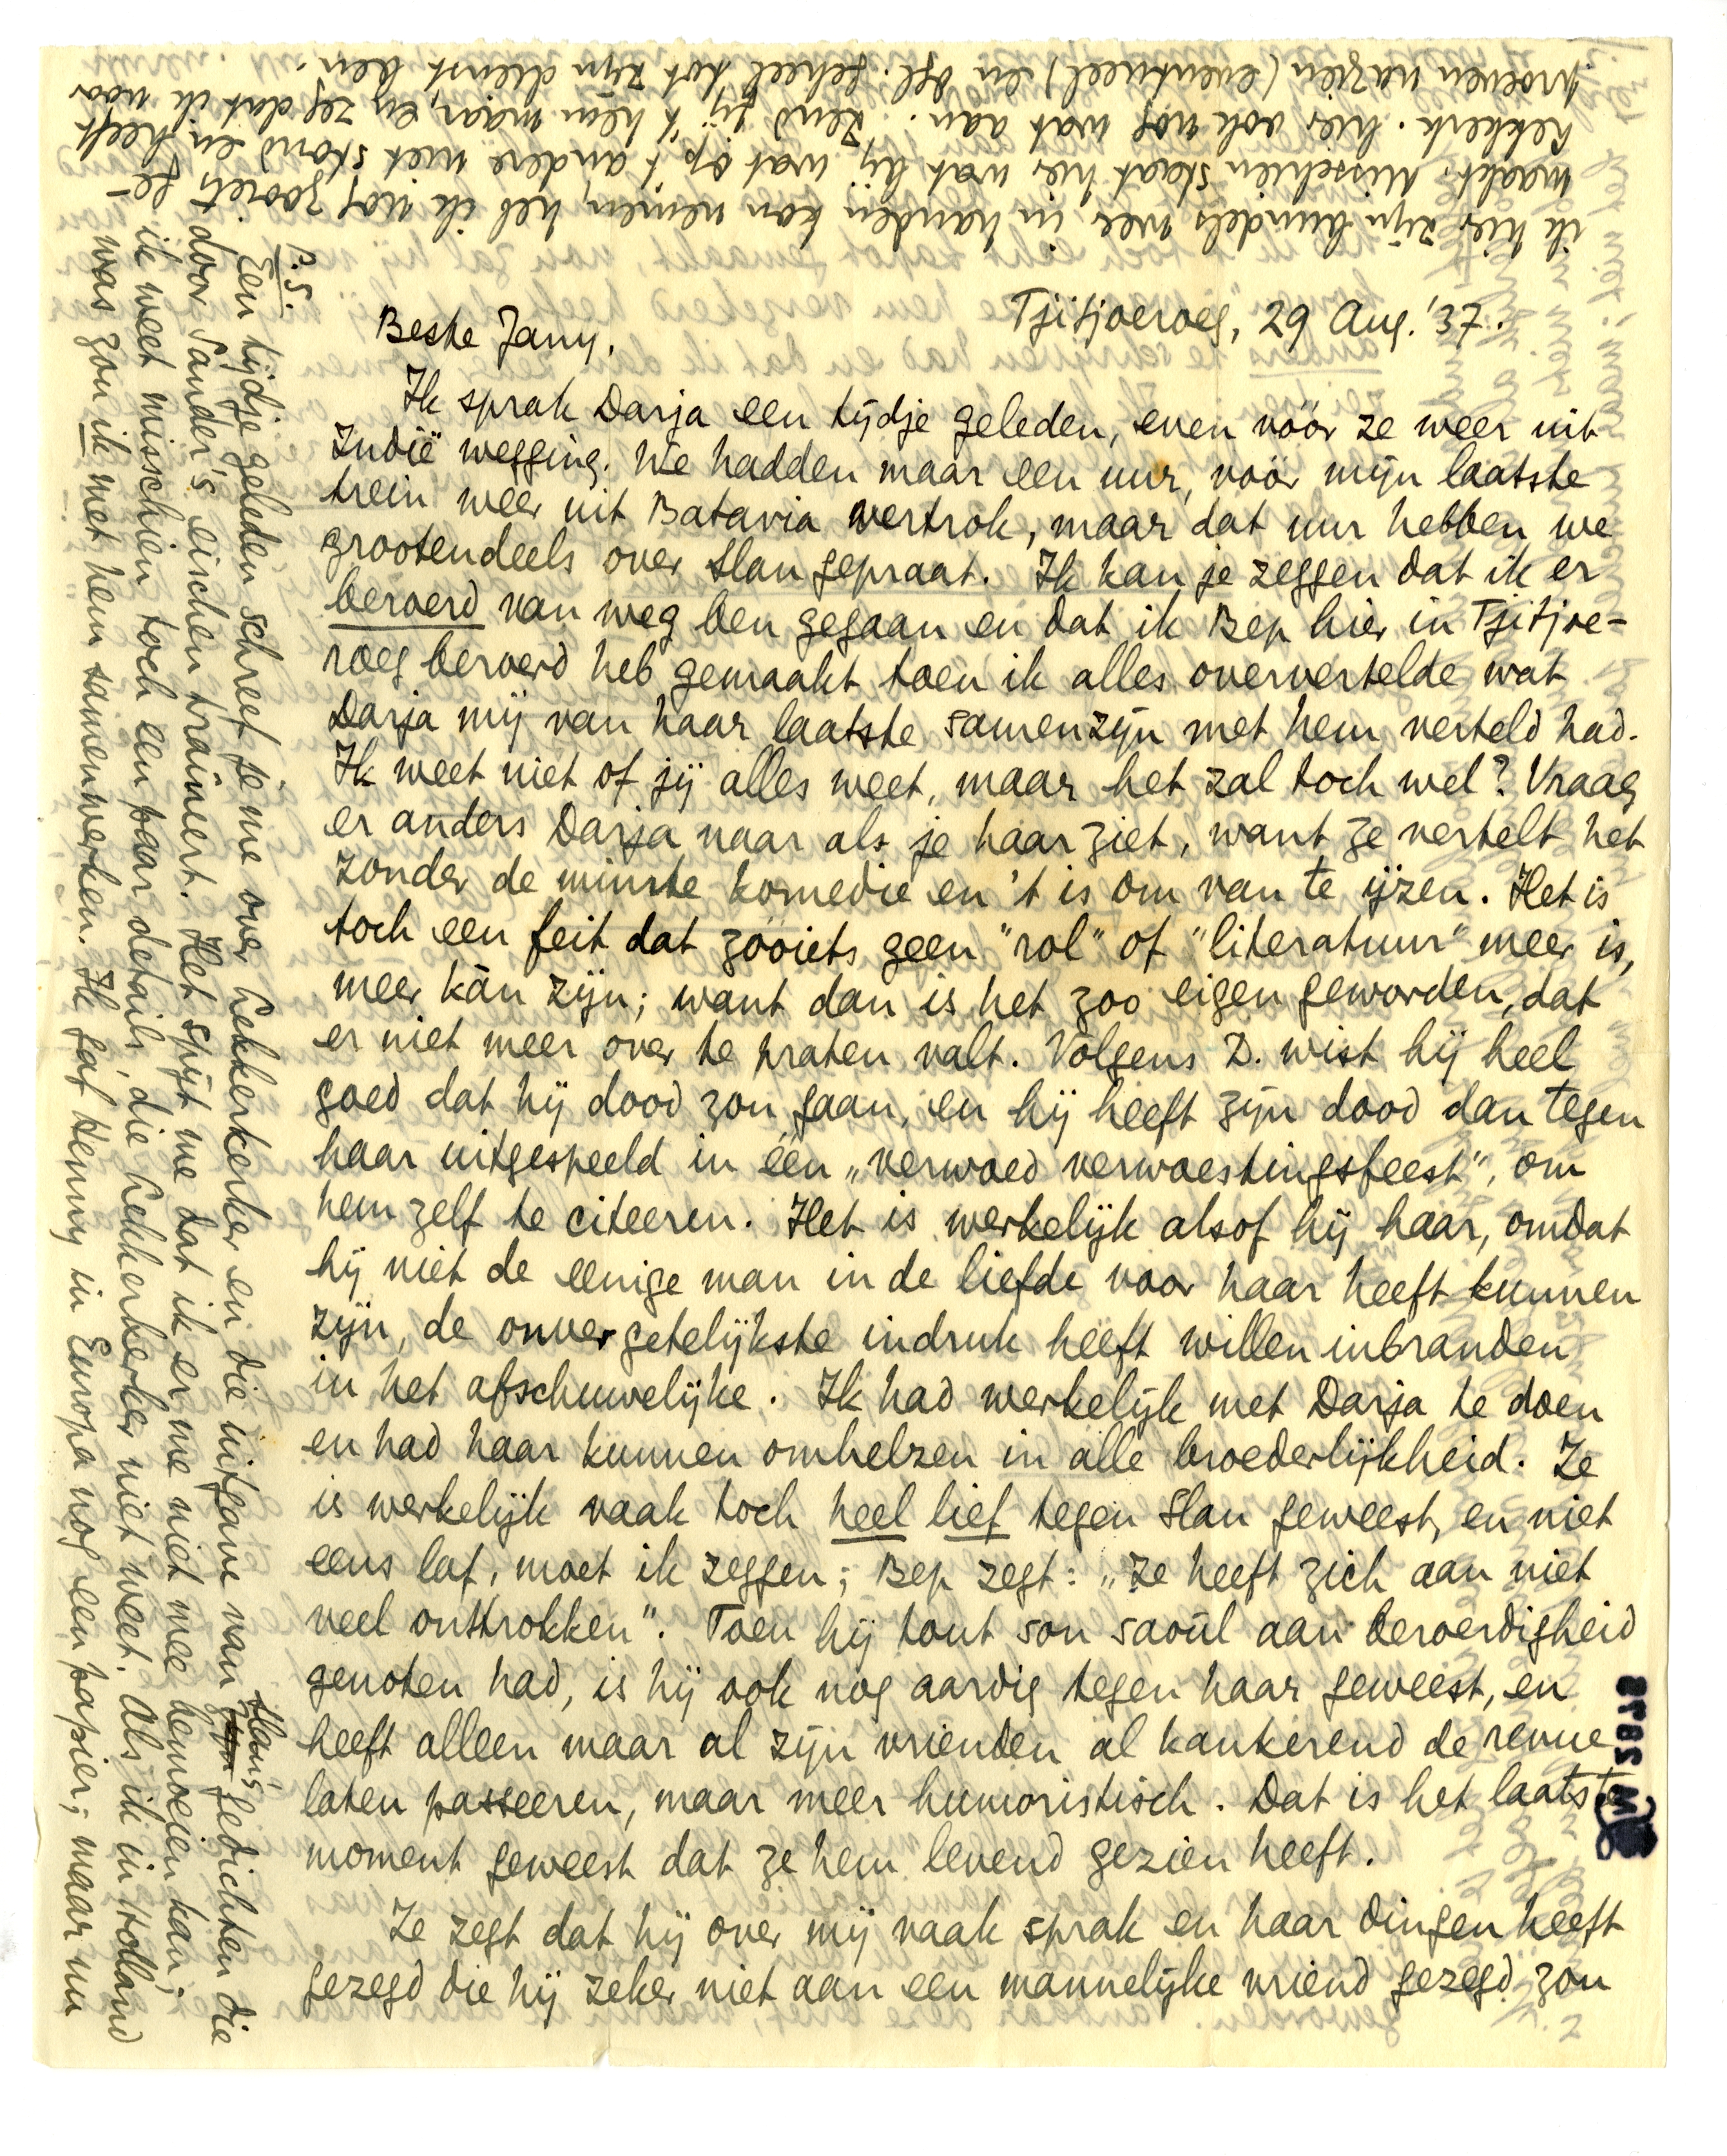 Tjitjoeroeg, 29 Aug. '37.
Beste Jany,
Ik sprak Darja een tijdje geleden, even vóór ze weer uit
Indië wegging. We hadden maar een uur, vóór mijn laatste
trein weer uit Batavia vertrok, maar dat uur hebben we
grootendeels over Slau gepraat. Ik kan je zeggen dat ik er
beroerd van weg ben gegaan en dat ik Bep hier in Tjitjoe-
roeg beroerd heb gemaakt toen ik alles oververtelde wat
Darja mij van haar laatste samenzijn met hem verteld had.
Ik weet niet of jij alles weet, maar het zal toch wel? Vraag
er anders Darja naar als je haar ziet, want ze vertelt het
zonder de minste komedie en 't is om van te ijzen. Het is
toch een feit dat zooiets geen "rol" of "literatuur" meer is,
meer kàn zijn; want dan is het zoo eigen geworden, dat
er niet meer over te praten valt. Volgens D. wist hij heel
goed dat hij dood zou gaan, en hij heeft zijn dood dan tegen
haar uitgespeeld in één „verwoed verwoestingsfeest", om
hem zelf te citeeren. Het is werkelijk alsof hij haar, omdat
hij niet de eenige man in de liefde voor haar heeft kunnen
zijn, de onvergetelijkste indruk heeft willen inbranden
in het afschuwelijke. Ik had werkelijk met Darja te doen
en had haar kunnen omhelzen in alle broederlijkheid. Ze
is werkelijk vaak toch heel lief tegen Slau geweest, en niet
eens laf, moet ik zeggen; Bep zegt: „Ze heeft zich aan niet
veel onttrokken". Toen hij tout son saoûl aan beroerdigheid
genoten had, is hij ook nog aardig tegen haar geweest, en
heeft alleen maar al zijn vrienden al kankerend de revue
laten passeeren, maar meer humoristisch. Dat is het laatste
moment geweest dat ze hem levend gezien heeft.
Ze zegt dat hij over mij vaak sprak en haar dingen heeft
gezegd die hij zeker niet aan een mannelijke vriend gezegd zou
P.S.
Een tijdje geleden schreef je me over Lekkerkerker en die uitgave van zijn Slau's gedichten die
door Sander's eischen traîneert. Het spijt me dat ik er me niet mee bemoeien kan;
ik weet misschien toch een paar details, die Lekkerkerker niet weet. Als ik in Holland
was zou ik met hem samenwerken. Ik gaf Henny in Europa nog een papier; maar nu
ik hier zijn bundels weer in handen kan nemen, heb ik nog zooiets ge-
maakt. Misschien staat hier wat bij, wat op 't andere niet stond en heeft
Lekkerk. hier ook nog wat aan. Zend jij 't hem maar, en zeg dat ik voor
proeven nazien (eventueel) en dgl. geheel tot zijn dienst ben.